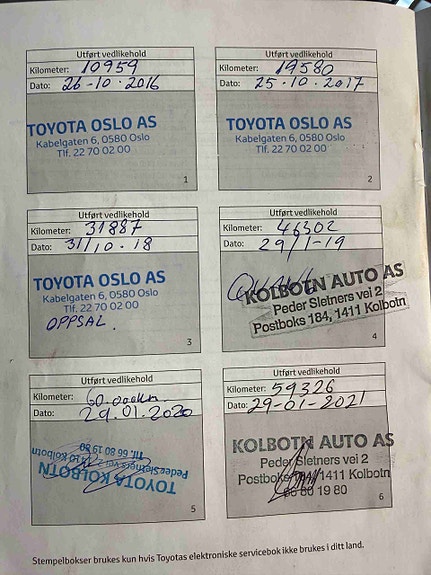 Utført vedlikehold
Kilometer: 10959
Dato: 26-10-2016
TOYOTA OSLO AS
Kabelgaten 6, 0580 Oslo
Tlf. 22 70 02 00
1
Utført vedlikehold
Kilometer: 19580
Dato: 25.10.2017
TOYOTA OSLO AS
Kabelgaten 6, 0580 Oslo
Tlf. 22 70 02 00
2
Utført vedlikehold
Kilometer: 31887
Dato: 31/10.18
TOYOTA OSLO AS
Kabelgaten 6, 0580 Oslo
Tlf. 22 70 02 00
OPPSAL.
3
Utført vedlikehold
Kilometer: 46302
Dato: 29/1-19
KOLBOTN AUTO AS
Peder Sletners vei 2
Postboks 184, 1411 Kolbotn
4
Utført vedlikehold
Kilometer: 60.000km
Dato: 29.01.2020
TOYOTA KOLBOTN
Peder Sletners vei 2, 1410 Kolbotn
Tlf. 66 80 19 80
5
Utført vedlikehold
Kilometer: 59326
Dato: 29-01-2021
KOLBOTN AUTO AS
Peder Sletners vei 2
1411 Kolbotn
66 80 19 80
6
Stempelbokser brukes kun hvis Toyotas elektroniske servicebok ikke brukes i ditt land.